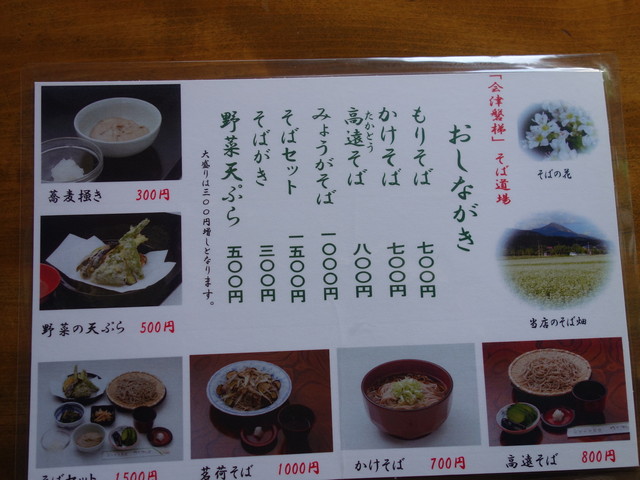 「会津磐梯」そば道場
おしながき
もりそば 七〇〇円
かけそば 七〇〇円
高遠そば 八〇〇円
たかとう
みょうがそば 一〇〇〇円
そばセット 一五〇〇円
そばがき 三〇〇円
野菜天ぷら 五〇〇円
大盛りは三〇〇円増しとなります。
そばの花
当店のそば畑
蕎麦掻き 300円
野菜の天ぷら 500円
そばセット 1500円
茗荷そば 1000円
かけそば 700円
高遠そば 800円